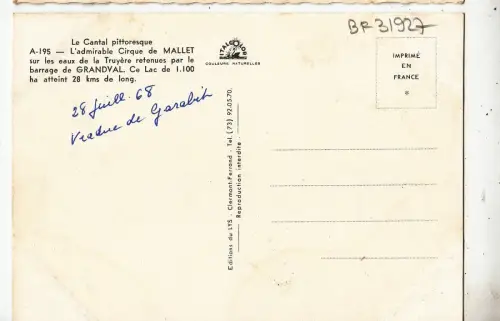 Le Cantal pittoresque
A-195 — L'admirable Cirque de MALLET
sur les eaux de la Truyère retenues par le
barrage de GRANDVAL. Ce Lac de 1.100
ha atteint 28 kms de long.
28 juill. 68
Viaduc de Garabit
ITALCOLOR
COULEURS NATURELLES
BF31927
IMPRIMÉ
EN
FRANCE
*
Editions du LYS - Clermont-Ferrand - Tel. (73) 92.05.70.
Reproduction interdite